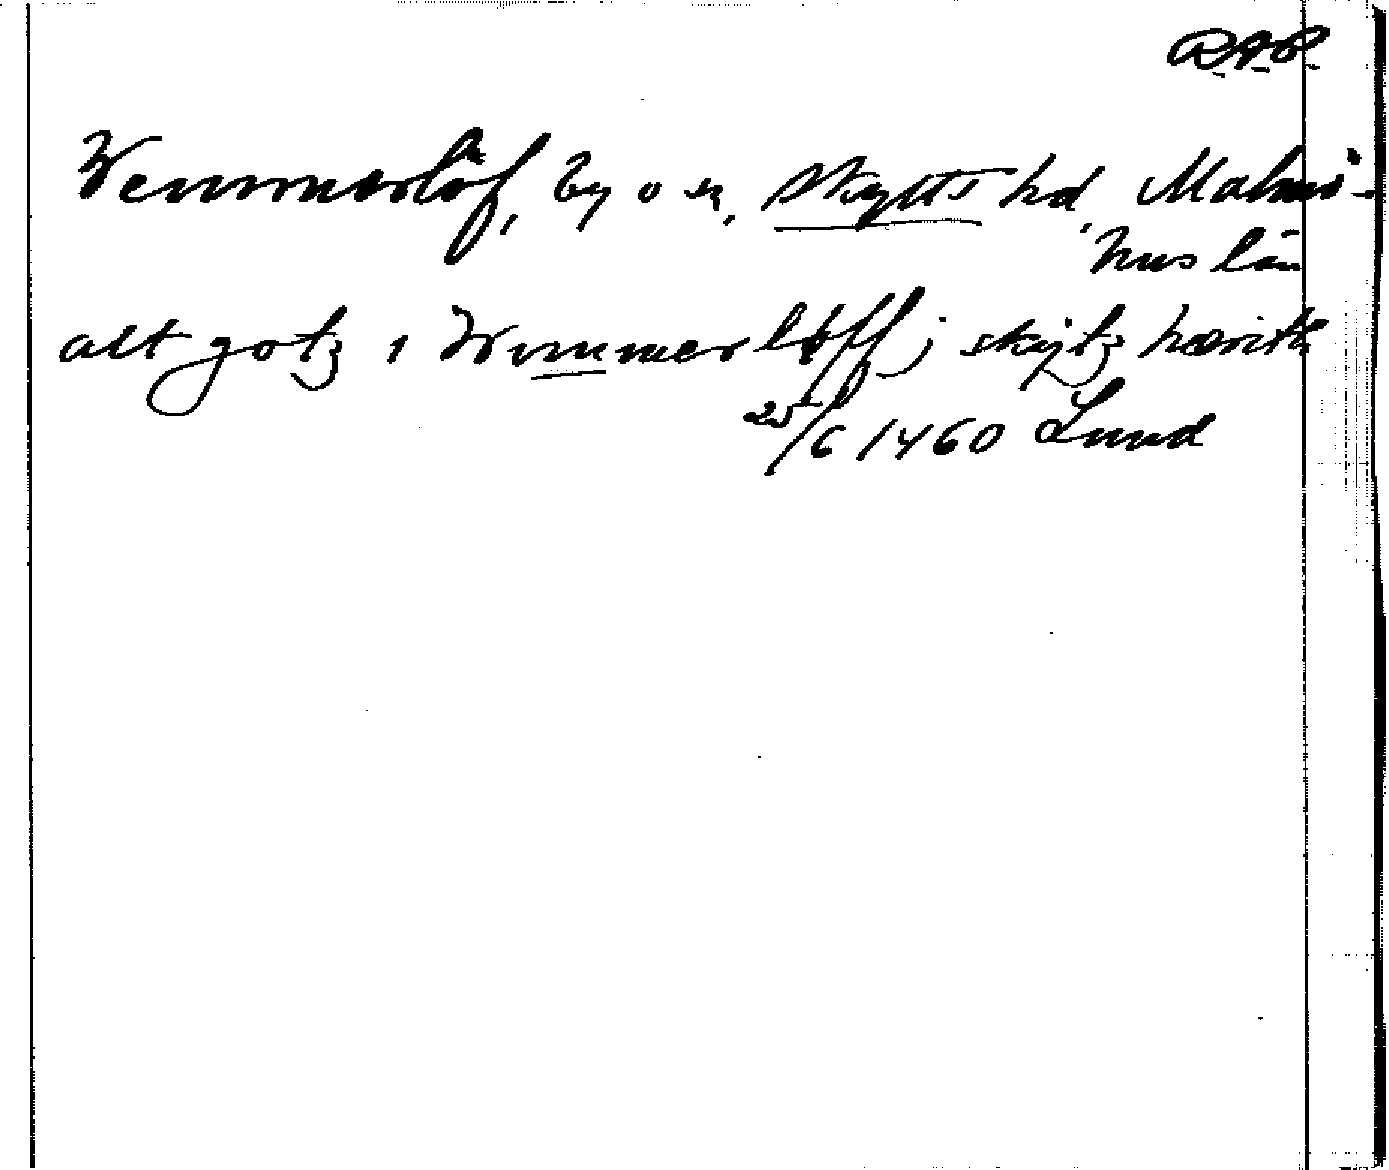 R.A.P.
Vemmerlöf, by o sn, Skytts hd, Malmö-
hus län
alt gotz i Wimmerløff j skytz hærith
25/6 1460 Lund